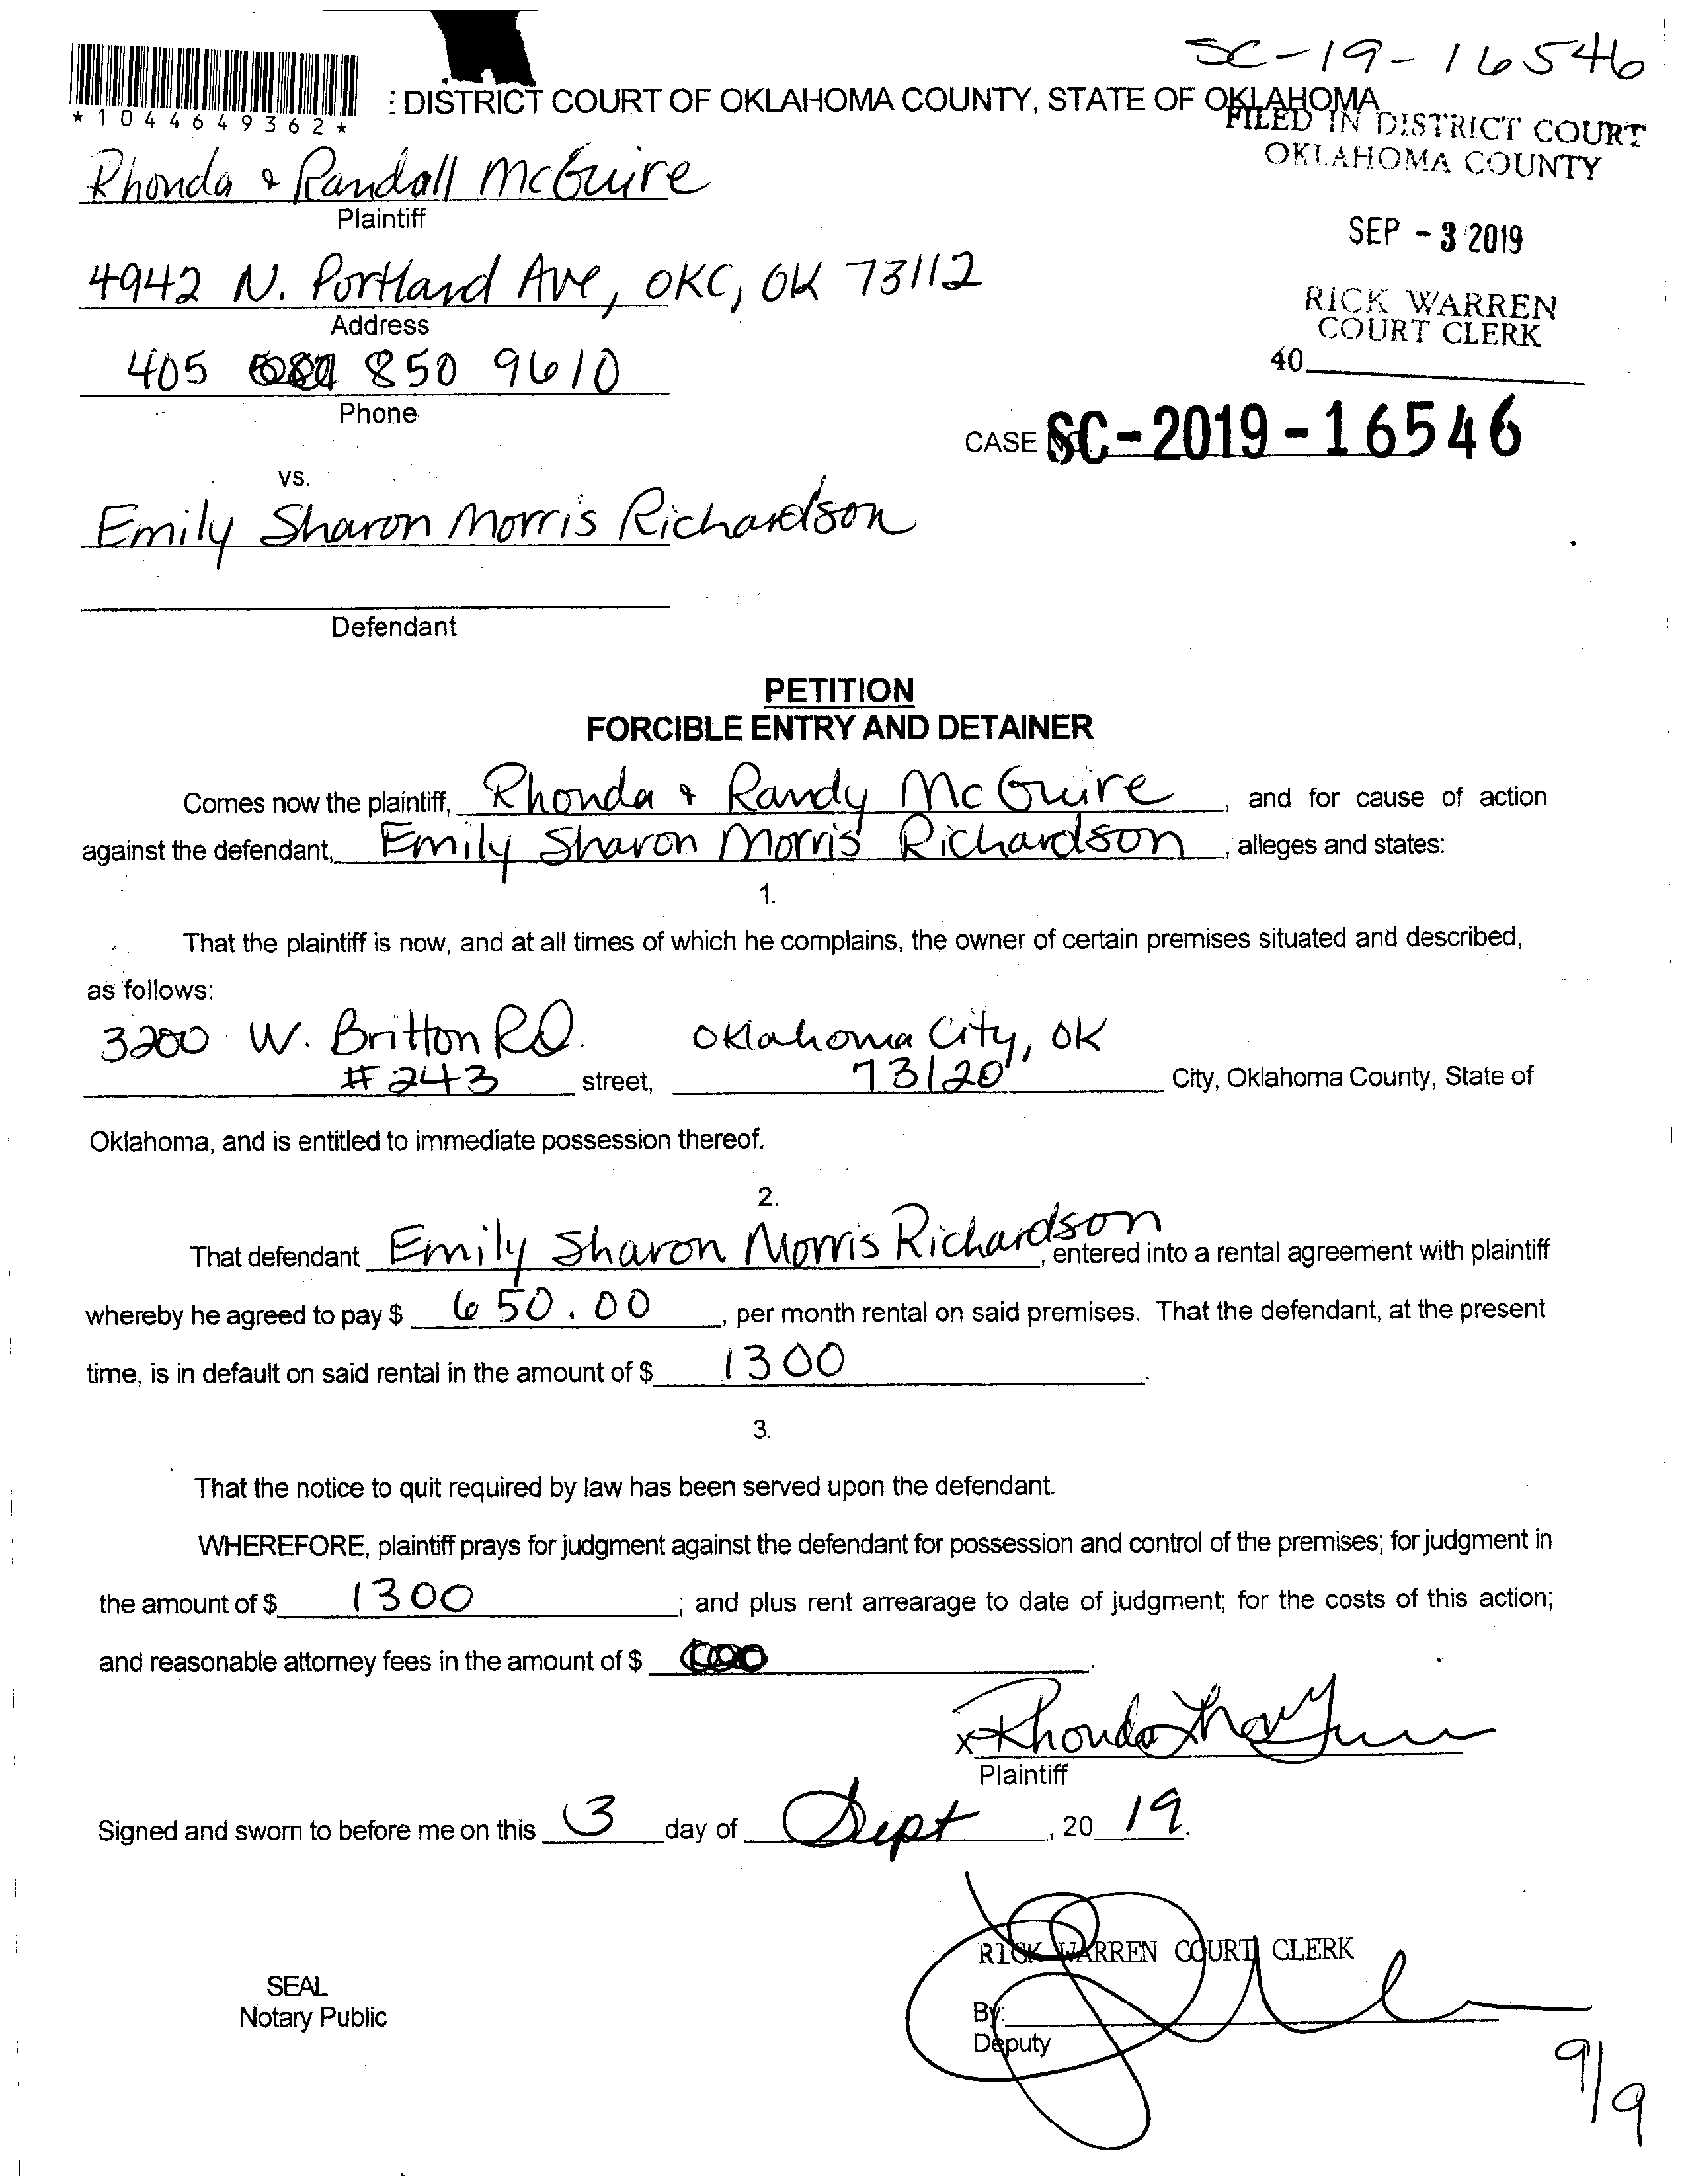 SC-19-16546
*1044649362*
: DISTRICT COURT OF OKLAHOMA COUNTY, STATE OF OKLAHOMA
FILED IN DISTRICT COURT
OKLAHOMA COUNTY
Rhonda & Randall McGuire
Plaintiff
SEP - 3 2019
4942 N. Portland Ave, OKC, OK 73112
Address
RICK WARREN
COURT CLERK
40
405 850 9610
Phone
CASE NO. SC-2019-16546
vs.
Emily Sharon Morris Richardson
Defendant
PETITION
FORCIBLE ENTRY AND DETAINER
Comes now the plaintiff, Rhonda & Randy McGuire, and for cause of action
against the defendant, Emily Sharon Morris Richardson, alleges and states:
1.
That the plaintiff is now, and at all times of which he complains, the owner of certain premises situated and described,
as follows:
3200 W. Britton RD. Oklahoma City, OK
#243 street, 73120 City, Oklahoma County, State of
Oklahoma, and is entitled to immediate possession thereof.
2.
That defendant Emily Sharon Morris Richardson, entered into a rental agreement with plaintiff
whereby he agreed to pay $ 650.00, per month rental on said premises. That the defendant, at the present
time, is in default on said rental in the amount of $ 1300.
3.
That the notice to quit required by law has been served upon the defendant.
WHEREFORE, plaintiff prays for judgment against the defendant for possession and control of the premises; for judgment in
the amount of $ 1300; and plus rent arrearage to date of judgment; for the costs of this action;
and reasonable attorney fees in the amount of $ .
x Rhonda
Plaintiff
Signed and sworn to before me on this 3 day of Sept, 20 19.
RICK WARREN COURT CLERK
SEAL
Notary Public
By:
Deputy
9/9